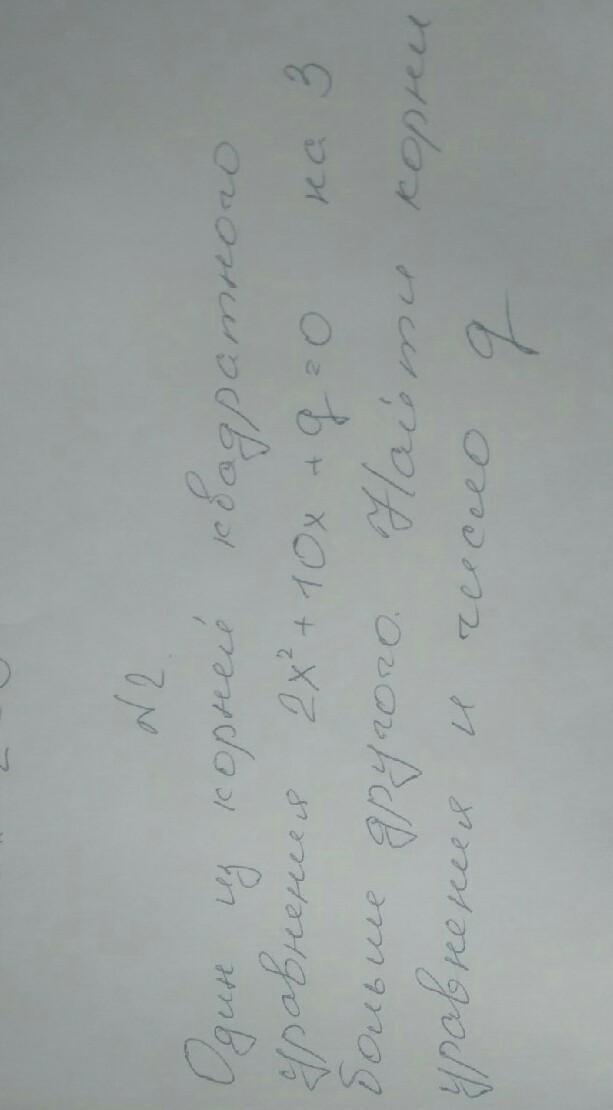 №2.
Один из корней квадратного
уравнения 2x² + 10x + q = 0 на 3
больше другого. Найти корни
уравнения и число q